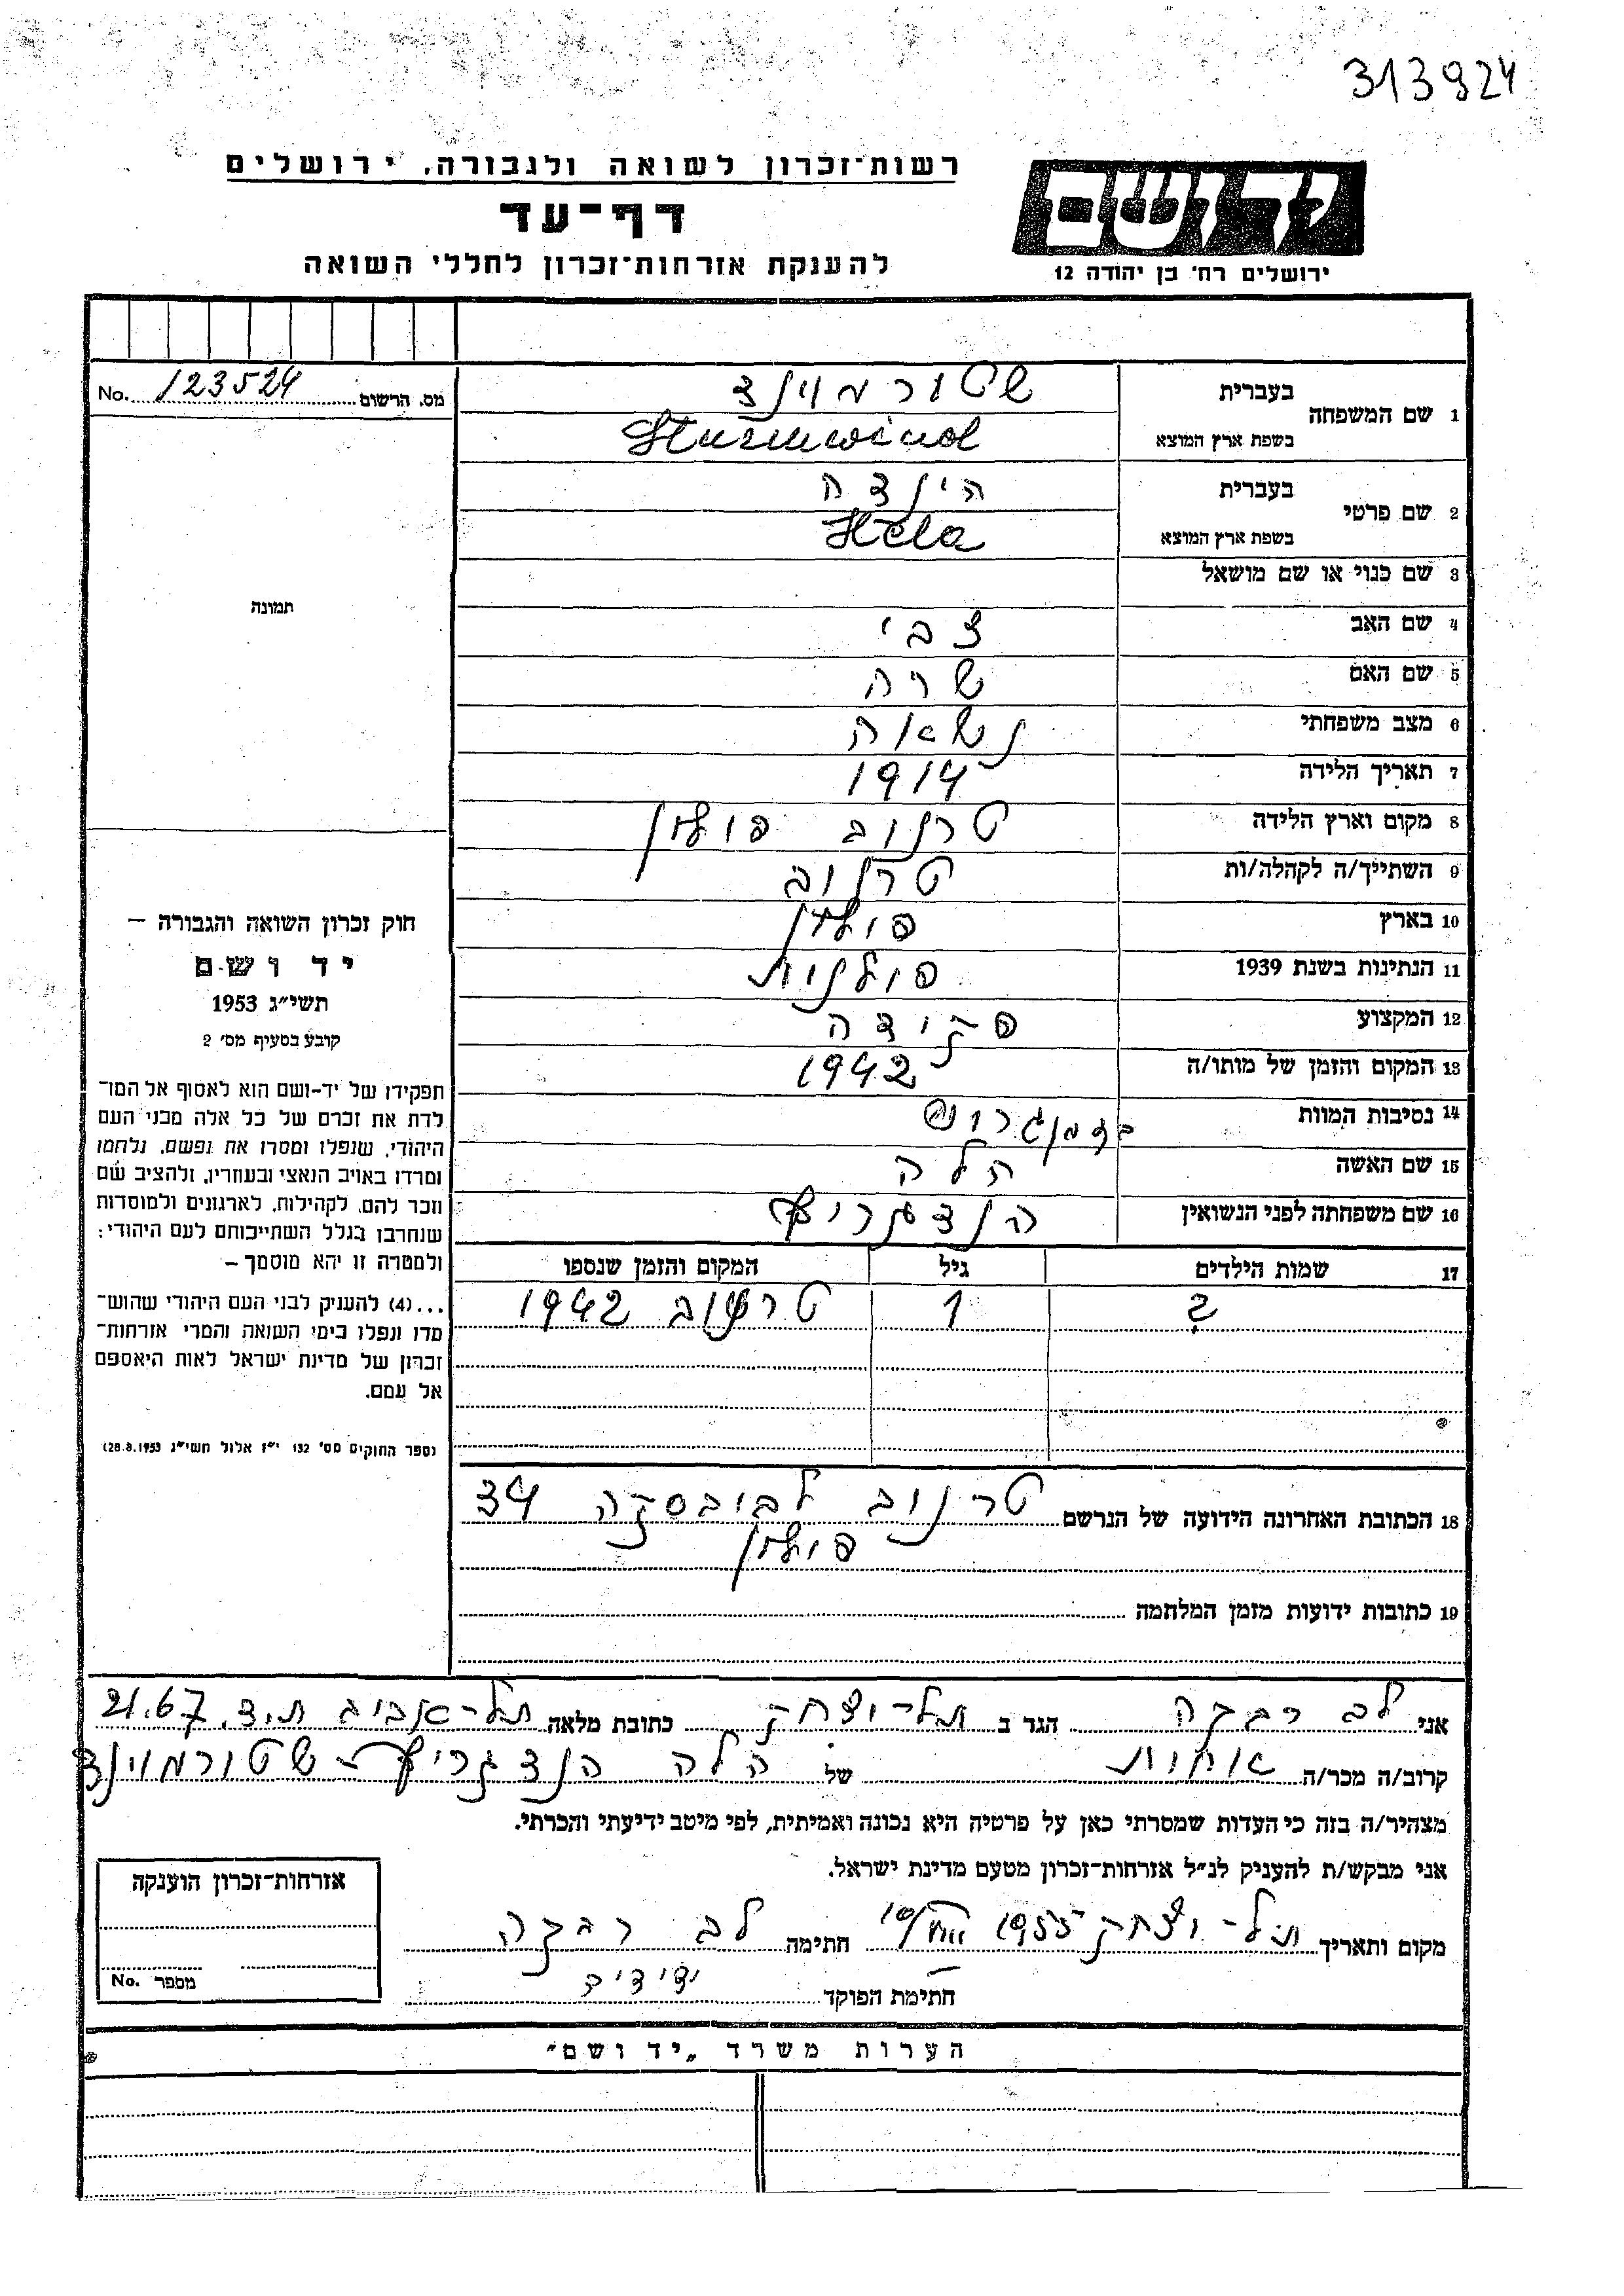 313924
רשות־זכרון לשואה ולגבורה, ירושלים
יד ושם
דף־עד
להענקת אזרחות־זכרון לחללי השואה
ירושלים רח' בן יהודה 12
מס. הרשום 123524 No.
1 שם המשפחה
בעברית שטורמוינד
בשפת ארץ המוצא Sturmwind
2 שם פרטי
בעברית הינדה
בשפת ארץ המוצא Hela
3 שם כנוי או שם מושאל
תמונה
4 שם האב צבי
5 שם האם שרה
6 מצב משפחתי נשואה
7 תאריך הלידה 1914
8 מקום וארץ הלידה טרנוב פולין
9 השתייך/ה לקהלה/ות טרנוב
10 בארץ פולין
11 הנתינות בשנת 1939 פולנית
12 המקצוע פקידה
13 המקום והזמן של מותו/ה 1942
14 נסיבות המוות
15 שם האשה הלה
16 שם משפחתה לפני הנשואין
17 שמות הילדים גיל המקום והזמן שנספו
? 1 טרנוב 1942
חוק זכרון השואה והגבורה —
יד ושם
תשי״ג 1953
קובע בסעיף מס' 2
תפקידו של יד-ושם הוא לאסוף אל המו־
לדת את זכרם של כל אלה מבני העם
היהודי, שנפלו ומסרו את נפשם, נלחמו
ומרדו באויב הנאצי ובעוזריו, ולהציב שם
וזכר להם, לקהילות, לארגונים ולמוסדות
שנחרבו בגלל השתייכותם לעם היהודי;
ולמטרה זו יהא מוסמך —
...(4) להעניק לבני העם היהודי שהוש־
מדו ונפלו בימי השואה והמרי אזרחות־
זכרון של מדינת ישראל לאות היאספם
אל עמם.
(ספר החוקים מס' 132 י״ז אלול תשי״ג 28.8.1953)
18 הכתובת האחרונה הידועה של הנרשם טרנוב לבובסקה 34
פולין
19 כתובות ידועות מזמן המלחמה
אני לב רבקה הגר ב תל-יצחק כתובת מלאה תל-אביב ת.ד. 21.67
קרוב/ה מכר/ה אחות של הלה שטורמוינד
מצהיר/ה בזה כי העדות שמסרתי כאן על פרטיה היא נכונה ואמיתית, לפי מיטב ידיעתי והכרתי.
אני מבקש/ת להעניק לנ״ל אזרחות־זכרון מטעם מדינת ישראל.
מקום ותאריך תל-יצחק 1955 חתימה לב רבקה
חתימת הפוקד
אזרחות־זכרון הוענקה
מספר No.
הערות משרד „יד ושם״